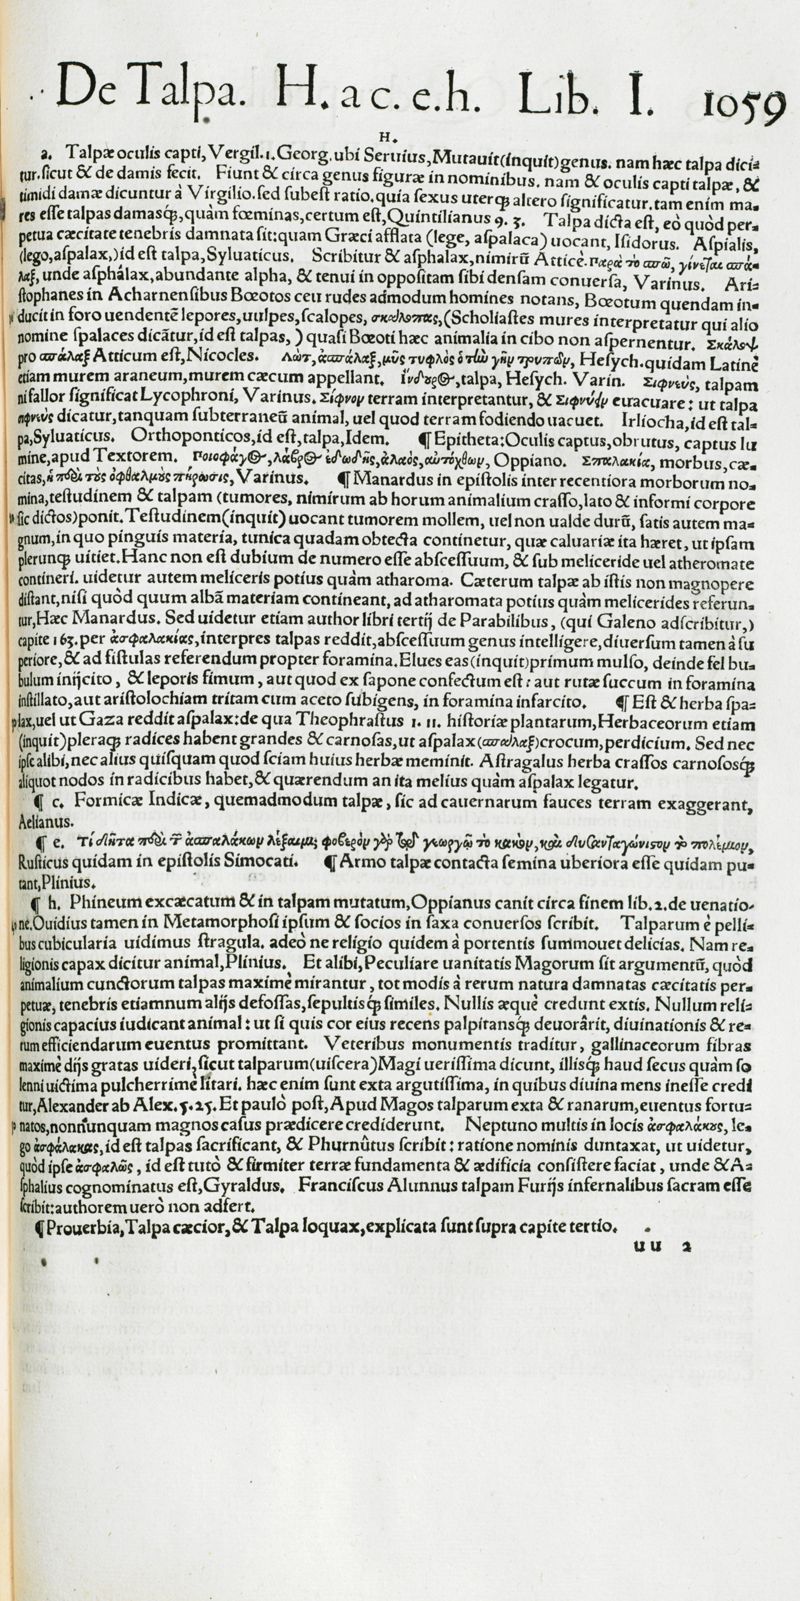 De Talpa. H. a c. e. h. Lib. I. 1059
H.
a. Talpæ oculis capti, Vergil. 1. Georg. ubi Seruius, Mutauit (inquit) genus. nam hæc talpa dici-
tur. sicut & de damis fecit. Fiunt & circa genus figuræ in nominibus. nam & oculis capti talpæ, &
timidi damæ dicuntur à Virgilio. sed subest ratio. quia sexus uterq; altero significatur. tam enim ma-
res esse talpas damasq́;, quàm fœminas, certum est, Quintilianus 9. 3. Talpa dicta est, eò quòd per-
petua cæcitate tenebris damnata sit: quam Græci afflata (lege, aspalaca) uocant, Isidorus. Aspialis,
(lego, aspalax,) id est talpa, Syluaticus. Scribitur & asphalax, nimirũ Atticè. παρὰ τὸ σπῶ, γίνεται σπά-
λαξ, unde asphálax, abundante alpha, & tenui in oppositam sibi densam conuersa, Varinus. Ari-
stophanes in Acharnensibus Bœotos ceu rudes admodum homines notans, Bœotum quendam in-
ducit in foro uendentẽ lepores, uulpes, scalopes, σκάλοπας, (Scholiastes mures interpretatur qui alio
nomine spalaces dicãtur, id est talpas, ) quasi Bœoti hæc animalia in cibo non aspernentur. Σκάλοψ
pro ασπάλαξ Atticum est, Nicocles. Λὼτ, ἀσπάλαξ, μῦς τυφλὸς ὁ τὴν γῆν τρυπῶν, Hesych. quidam Latinè
etiam murem araneum, murem cæcum appellant. Ἴνδουρος, talpa, Hesych. Varin. Σιφνεὺς, talpam
ni fallor significat Lycophroni, Varinus. Σίφνον terram interpretantur, & Σιφνύειν euacuare: ut talpa
σιφνεὺς dicatur, tanquam subterraneũ animal, uel quod terram fodiendo uacuet. Irliocha, id est tal-
pa, Syluaticus. Orthoponticos, id est, talpa, Idem. ¶ Epitheta: Oculis captus, obrutus, captus lu
mine, apud Textorem. Ποιοφάγος, λάβρος ἐδωδῆς, ἀλαὸς, αὐτόχθων, Oppiano. Σπαλακία, morbus, cæ-
citas, ἡ περὶ τοὺς ὀφθαλμοὺς πήρωσις, Varinus. ¶ Manardus in epistolis inter recentiora morborum no-
mina, testudinem & talpam (tumores, nimirum ab horum animalium crasso, lato & informi corpore
sic dictos) ponit. Testudinem (inquit) uocant tumorem mollem, uel non ualde durũ, satis autem ma-
gnum, in quo pinguis materia, tunica quadam obtecta continetur, quæ caluariæ ita hæret, ut ipsam
plerunq; uitiet. Hanc non est dubium de numero esse abscessuum, & sub meliceride uel atheromate
contineri. uidetur autem meliceris potius quàm atharoma. Cæterum talpæ ab istis non magnopere
distant, nisi quòd quum albã materiam contineant, ad atharomata potius quàm melicerides referun-
tur, Hæc Manardus. Sed uidetur etiam author libri tertij de Parabilibus, (qui Galeno adscribitur,)
capite 163. per ἀσφαλακίας, interpres talpas reddit, abscessuum genus intelligere, diuersum tamen à su
periore, & ad fistulas referendum propter foramina. Elues eas (inquit) primum mulso, deinde fel bu-
bulum inijcito, & leporis fimum, aut quod ex sapone confectum est: aut rutæ succum in foramina
instillato, aut aristolochiam tritam cum aceto subigens, in foramina infarcito. ¶ Est & herba spa-
plax, uel ut Gaza reddit aspalax: de qua Theophrastus 1. 11. historiæ plantarum, Herbaceorum etiam
(inquit) pleraq; radices habent grandes & carnosas, ut aspalax (σπάλαξ) crocum, perdicium. Sed nec
ipse alibi, nec alius quisquam quod sciam huius herbæ meminit. Astragalus herba crassos carnososq́;
aliquot nodos in radicibus habet, & quærendum an ita melius quàm aspalax legatur.
¶ c. Formicæ Indicæ, quemadmodum talpæ, sic ad cauernarum fauces terram exaggerant,
Aelianus.
¶ e. Τί δῆτα περὶ τῶν ἀσπαλάκων λέξαιμι; φοβερὸν γὰρ τῷ γεωργῷ τὸ κακὸν, καὶ δυσανταγώνιστον τὸ πολέμιον,
Rusticus quidam in epistolis Simocati. ¶ Armo talpæ contacta semina uberiora esse quidam pu-
tant, Plinius.
¶ h. Phineum excæcatum & in talpam mutatum, Oppianus canit circa finem lib. 2. de uenatio-
ne. Ouidius tamen in Metamorphosi ipsum & socios in saxa conuersos scribit. Talparum è pelli-
bus cubicularia uidimus stragula. adeò ne religio quidem à portentis summouet delicias. Nam re-
ligionis capax dicitur animal, Plinius. Et alibi, Peculiare uanitatis Magorum sit argumentũ, quòd
animalium cunctorum talpas maximè mirantur, tot modis à rerum natura damnatas cæcitatis per-
petuæ, tenebris etiamnum alijs defossas, sepultisq́; similes. Nullis æquè credunt extis. Nullum reli-
gionis capacius iudicant animal: ut si quis cor eius recens palpitansq́; deuorârit, diuinationis & re-
rum efficiendarum euentus promittant. Veteribus monumentis traditur, gallinaceorum fibras
maximè dijs gratas uideri, sicut talparum (uiscera) Magi uerissima dicunt, illisq́; haud secus quàm so
lenni uictima pulcherrimè litari. hæc enim sunt exta argutissima, in quibus diuina mens inesse credi
tur, Alexander ab Alex. 5. 25. Et paulò post, Apud Magos talparum exta & ranarum, euentus fortu-
natos, nonnunquam magnos casus prædicere crediderunt. Neptuno multis in locis ἀσφαλάκους, le-
go ἀσφάλακας, id est talpas sacrificant, & Phurnûtus scribit: ratione nominis duntaxat, ut uidetur,
quòd ipse ἀσφαλῶς, id est tutò & firmiter terræ fundamenta & ædificia consistere faciat, unde & A-
sphalius cognominatus est, Gyraldus. Franciscus Alunnus talpam Furijs infernalibus sacram esse
scribit: authorem uerò non adfert.
¶ Prouerbia, Talpa cæcior, & Talpa loquax, explicata sunt supra capite tertio.
uu 2